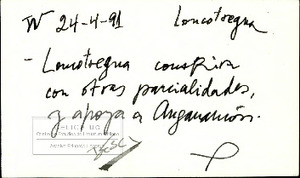 IV 24-4-91 Loncotregua
- Loncotregua conspira
con otras parcialidades,
y apoya a Anganamón.